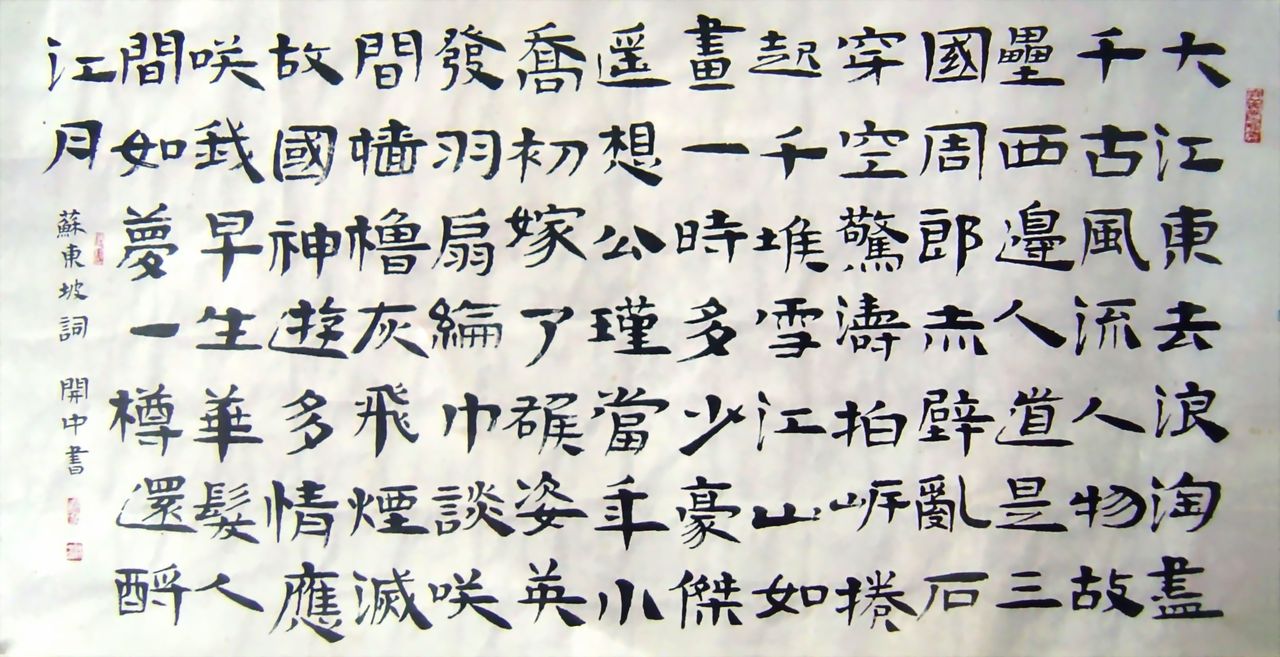 大江東去浪淘盡
千古風流人物故
壘西邊人道是三
國周郎赤壁亂石
穿空驚濤拍岸捲
起千堆雪江山如
畫一時多少豪傑
遥想公瑾當年小
喬初嫁了雄姿英
發羽扇綸巾談咲
間檣櫓灰飛煙滅
故國神遊多情應
咲我早生華髮人
間如夢一樽還酹
江月
蘇東坡詞 開中書